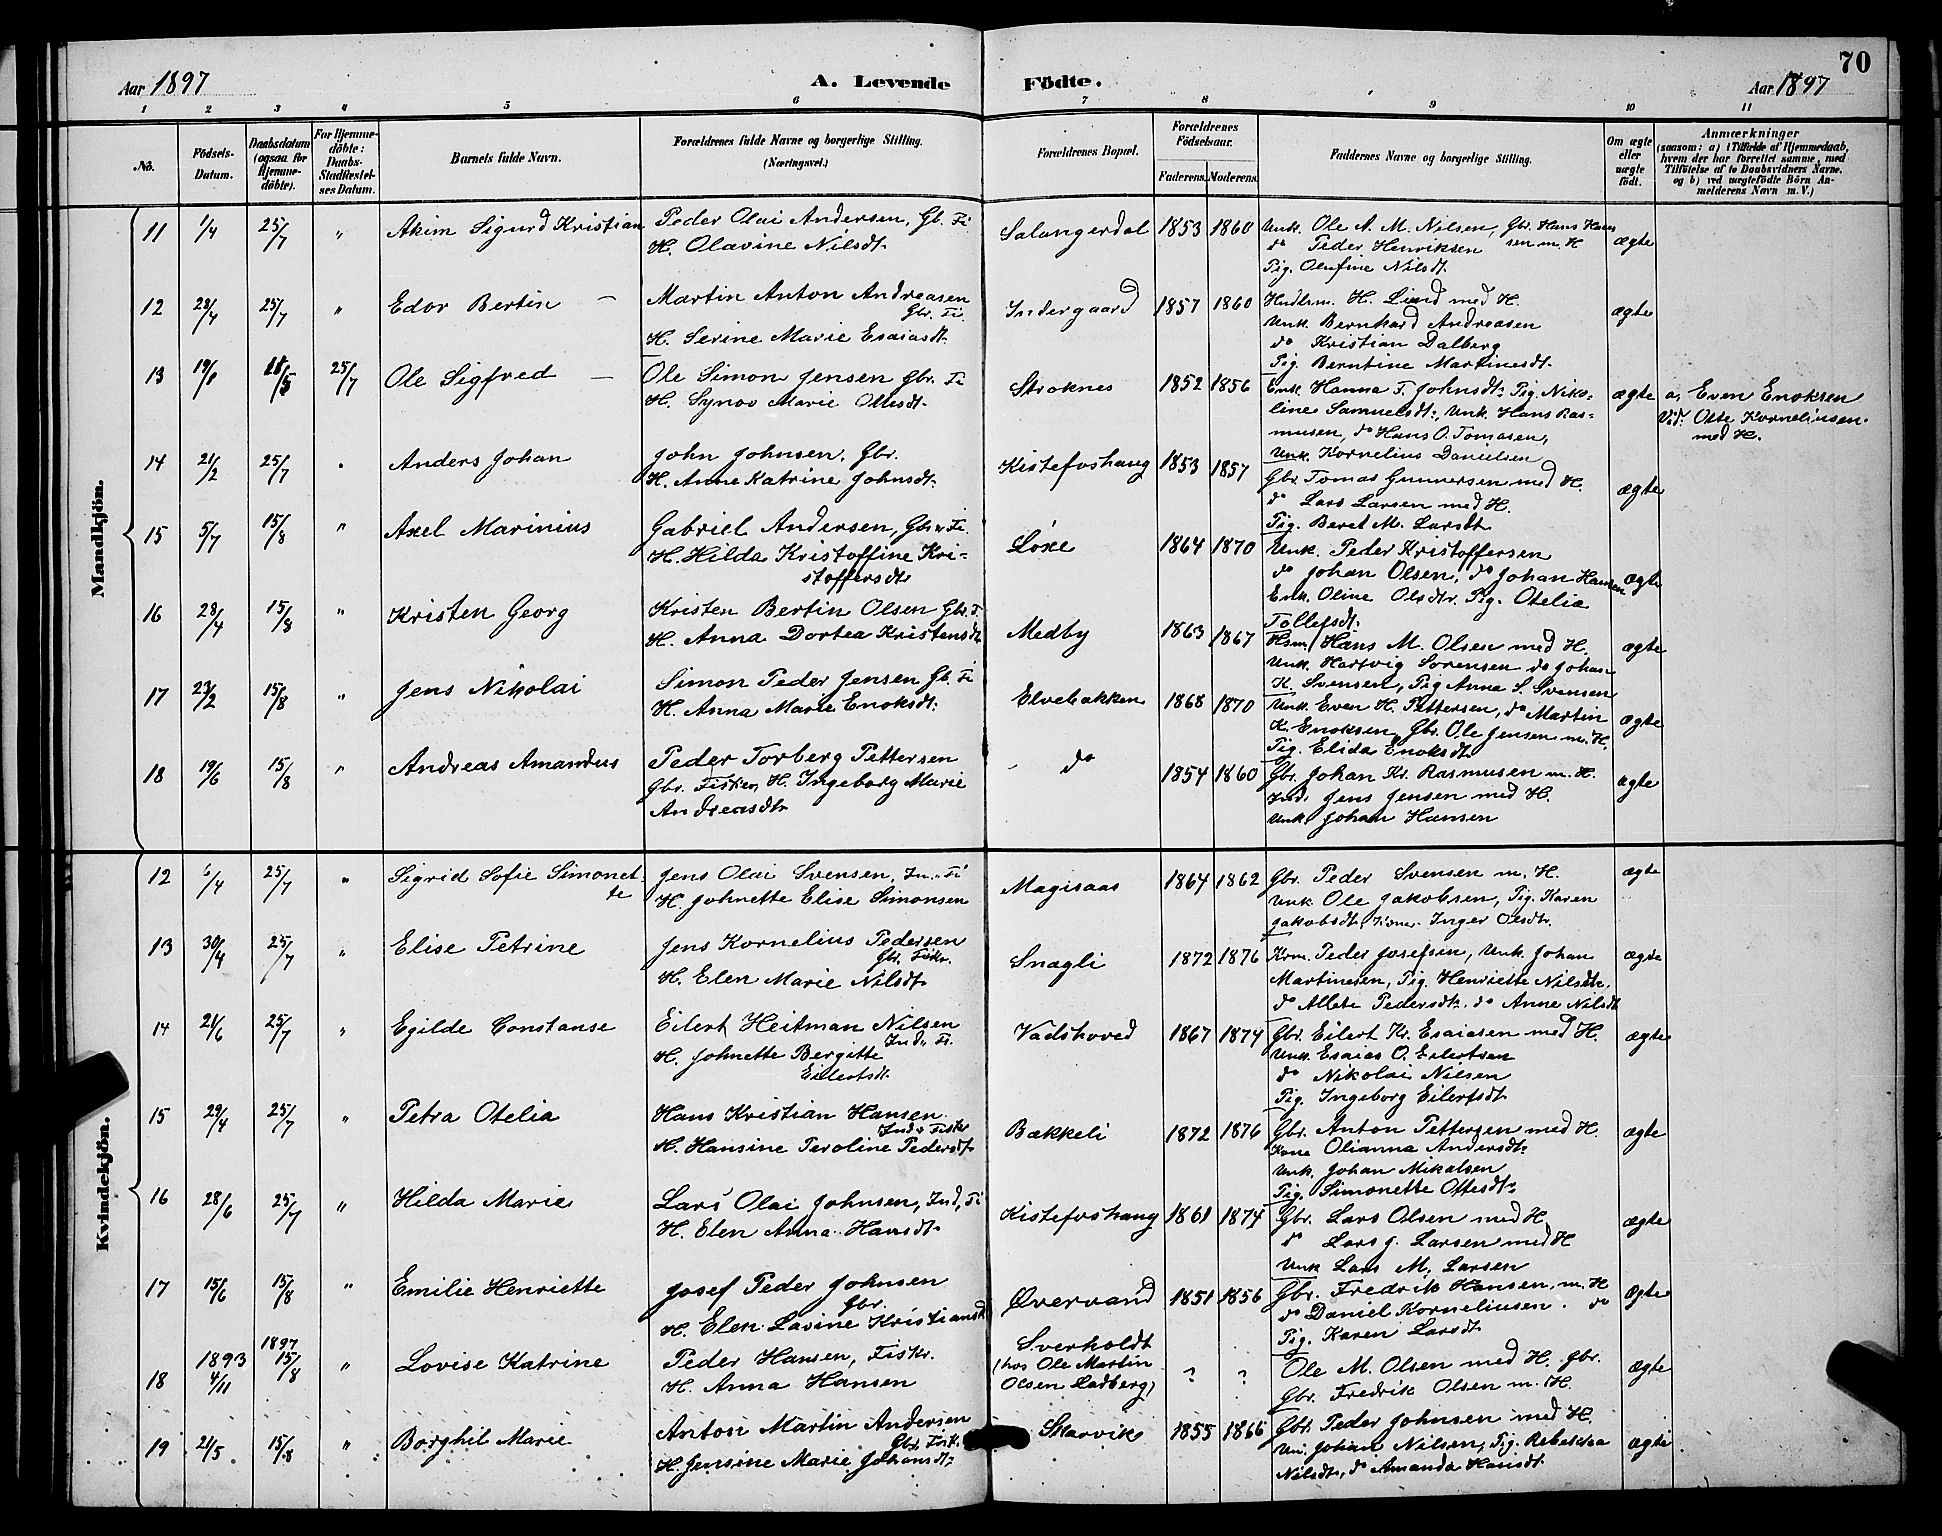 70
Aar 1897
A. Levende Fødte.
Aar 1897
1 2 3 4 5 6 7 8 9 10 11
No.
Födsels-Datum.
Daabsdatum (ogsaa for Hjemme-döbte).
For Hjemme-döbte: Daabs-Stadfæstel-ses Datum.
Barnets fulde Navn.
Forældrenes fulde Navne og borgerlige Stilling. (Næringsvei.)
Forældrenes Bopæl.
Forældrenes Födselsaar.
Faderens. Moderens.
Faddernes Navne og borgerlige Stilling.
Om ægte eller uægte født.
Anmærkninger
(saasom: a) i Tilfælde af Hjemmedaab, hvem der har forrettet samme, med Tilføielse af to Daabsvidners Navne, og b) ved uægtefødte Börn An-melderens Navn m. V.)
Mandkjön.
11 1/4 25/7 " Akim Sigurd Kristian
Peder Olai Andersen, Gb. Fi
H. Olavine Nilsdt.
Salangerdal 1853 1860
Unk. Ole A. M. Nilsen, Gbr. Hans Hans
do Peder Henriksen sen m. H
Pig. Olufine Nilsdt.
ægte
12 28/4 25/7 " Edor Bertin —
Martin Anton Andreasen
Gbr. Fi.
H. Serine Marie Esaiasdt.
Indergaard 1857 1860
Hndlsm. H. Lind med H.
Unk. Bernhard Andreasen
do Kristian Dalberg
Pig. Berntine Martinesdt.
ægte
13 19/1 25/7 Ole Sigfred —
Ole Simon Jensen Gbr. Fi
H. Synov Marie Ottesdt.
Stroknes 1852 1856
Enk. Hanna F. Johnsdt. Pig. Niko-
line Samuelsdt., Unk. Hans Ras-
musen, do Hans O. Tomasen,
Unk. Kornelius Danielsen
ægte a, Even Enoksen
Vid: Otte Korneliusen.
med H.
14 21/2 25/7 " Anders Johan
John Johnsen, Gbr.
H. Anne Katrine Johnsdt.
Kistefoshaug 1853 1857
Gbr. Tomas Gunnersen med H.
do Lars Larsen med H.
Pig. Beret M. Larsdt.
ægte
15 5/7 15/8 " Axel Marinius
Gabriel Andersen, Gbr. Fi.
H. Hilda Kristoffine Kri-
stoffersdt.
Löxe 1864 1870
Unk. Peder Kristoffersen
do Johan Olsen, do Johan Hansen
Enk. Oline Olsdtr. Pig. Otelia
Tollefsdt.
ægte
16 28/4 15/8 " Kristen Georg
Kristen Bertin Olsen Gbr. F.
H. Anna Dortea Kristensdt.
Medby 1863 1867
Hsm. Hans M. Olsen med H.
Unk. Hartvig Sörensen do Johan
K. Svensen, Pig Anna S. Svensen
ægte
17 23/2 15/8 " Jens Nikolai
Simon Peder Jensen Gb. Fi
H. Anna Marie Enoksdt.
Elvebakken 1868 1870
Unk. Even H. Pettersen, do Martin
K. Enoksen, Gbr. Ole Jensen m. H.
Pig. Elida Enoksdt.
ægte
18 19/6 15/8 " Andreas Amandus
Peder Torberg Pettersen
Gbr. Fisker, H. Ingeborg Marie
Andreasdt.
do 1854 1860
Gbr. Johan Kr. Rasmusen m. H.
Ind. Jens Jensen med H.
Unk. Johan Hansen
ægte
Kvindekjön.
12 6/4 25/7 " Sigrid Sofie Simonet-
te
Jens Olai Svensen, In. Fi
H. Johnette Elise Simonsen
Magisaas 1864 1862
Gbr. Peder Svensen m. H.
Unk. Ole Jakobsen, Pig. Karen
Jakobsdt, Kone Inger Olsdtr.
ægte
13 30/4 25/7 " Elise Petrine
Jens Kornelius Pedersen
Gbr. Fiskr.
H. Elen Marie Nilsdt.
Snægli 1872 1876
Krm. Peder Josefsen, Unk. Johan
Martinesen, Pig. Henriette Nilsdt.
do Allete Pedersdt. do Anne Nilsdt
ægte
14 21/6 25/7 " Egilde Constanse
Eilert Heitman Nilsen
Ind. Fi.
H. Johnette Bergitte
Eilertsdt.
Vadshoved 1867 1874
Gbr. Eilert Kr. Esaiasen med H.
Unk. Esaias O. Eilertsen
do Nikolai Nilsen
Pig. Ingeborg Eilertsdt
ægte
15 29/4 25/7 " Petra Otelia
Hans Kristian Hansen
Ind. Fiskr
H. Hansine Peroline Pedersdt.
Bækkeli 1872 1876
Gbr. Anton Pettersen med H.
Kone Olianna Andersdt.
Unk. Johan Mikalsen
Pig. Simonette Ottesdt.
ægte
16 28/6 25/7 " Hilda Marie
Lars Olai Johnsen, Ind, Fi
H. Elen Anna Hansdt.
Kistefoshaug 1861 1874
Gbr. Lars Olsen med H
do Lars J. Larsen med H
Unk Lars M. Larsen
ægte
17 15/6 15/8 " Emilie Henriette
Josef Peder Johnsen
Gbr.
H. Elen Lavine Kristiansd
Övervand 1851 1856
Gbr. Fredrik Hansen, m. H
do Daniel Korneliusen. do
Pig. Karen Larsdt
ægte
18 1893 4/11 1897 15/8 " Lovise Katrine
Peder Hansen, Fiskr.
H. Anna Hansen
Sverholdt
(hos Ole Martin
Olsen Ladberg)
? ?
Ole M. Olsen med H. gbr.
Gbr. Fredrik Olsen m. H.
ægte
19 21/5 15/8 " Borghil Marie
Anton Martin Andersen
Gbr. Fisk.
H. Jensine Marie Johansdt.
Skarvik 1855 1866
Gbr. Peder Johnsen med H.
Un. Johan Nilsen, Pig. Rebekka
Nilsdt., do Amanda Hansdt
ægte